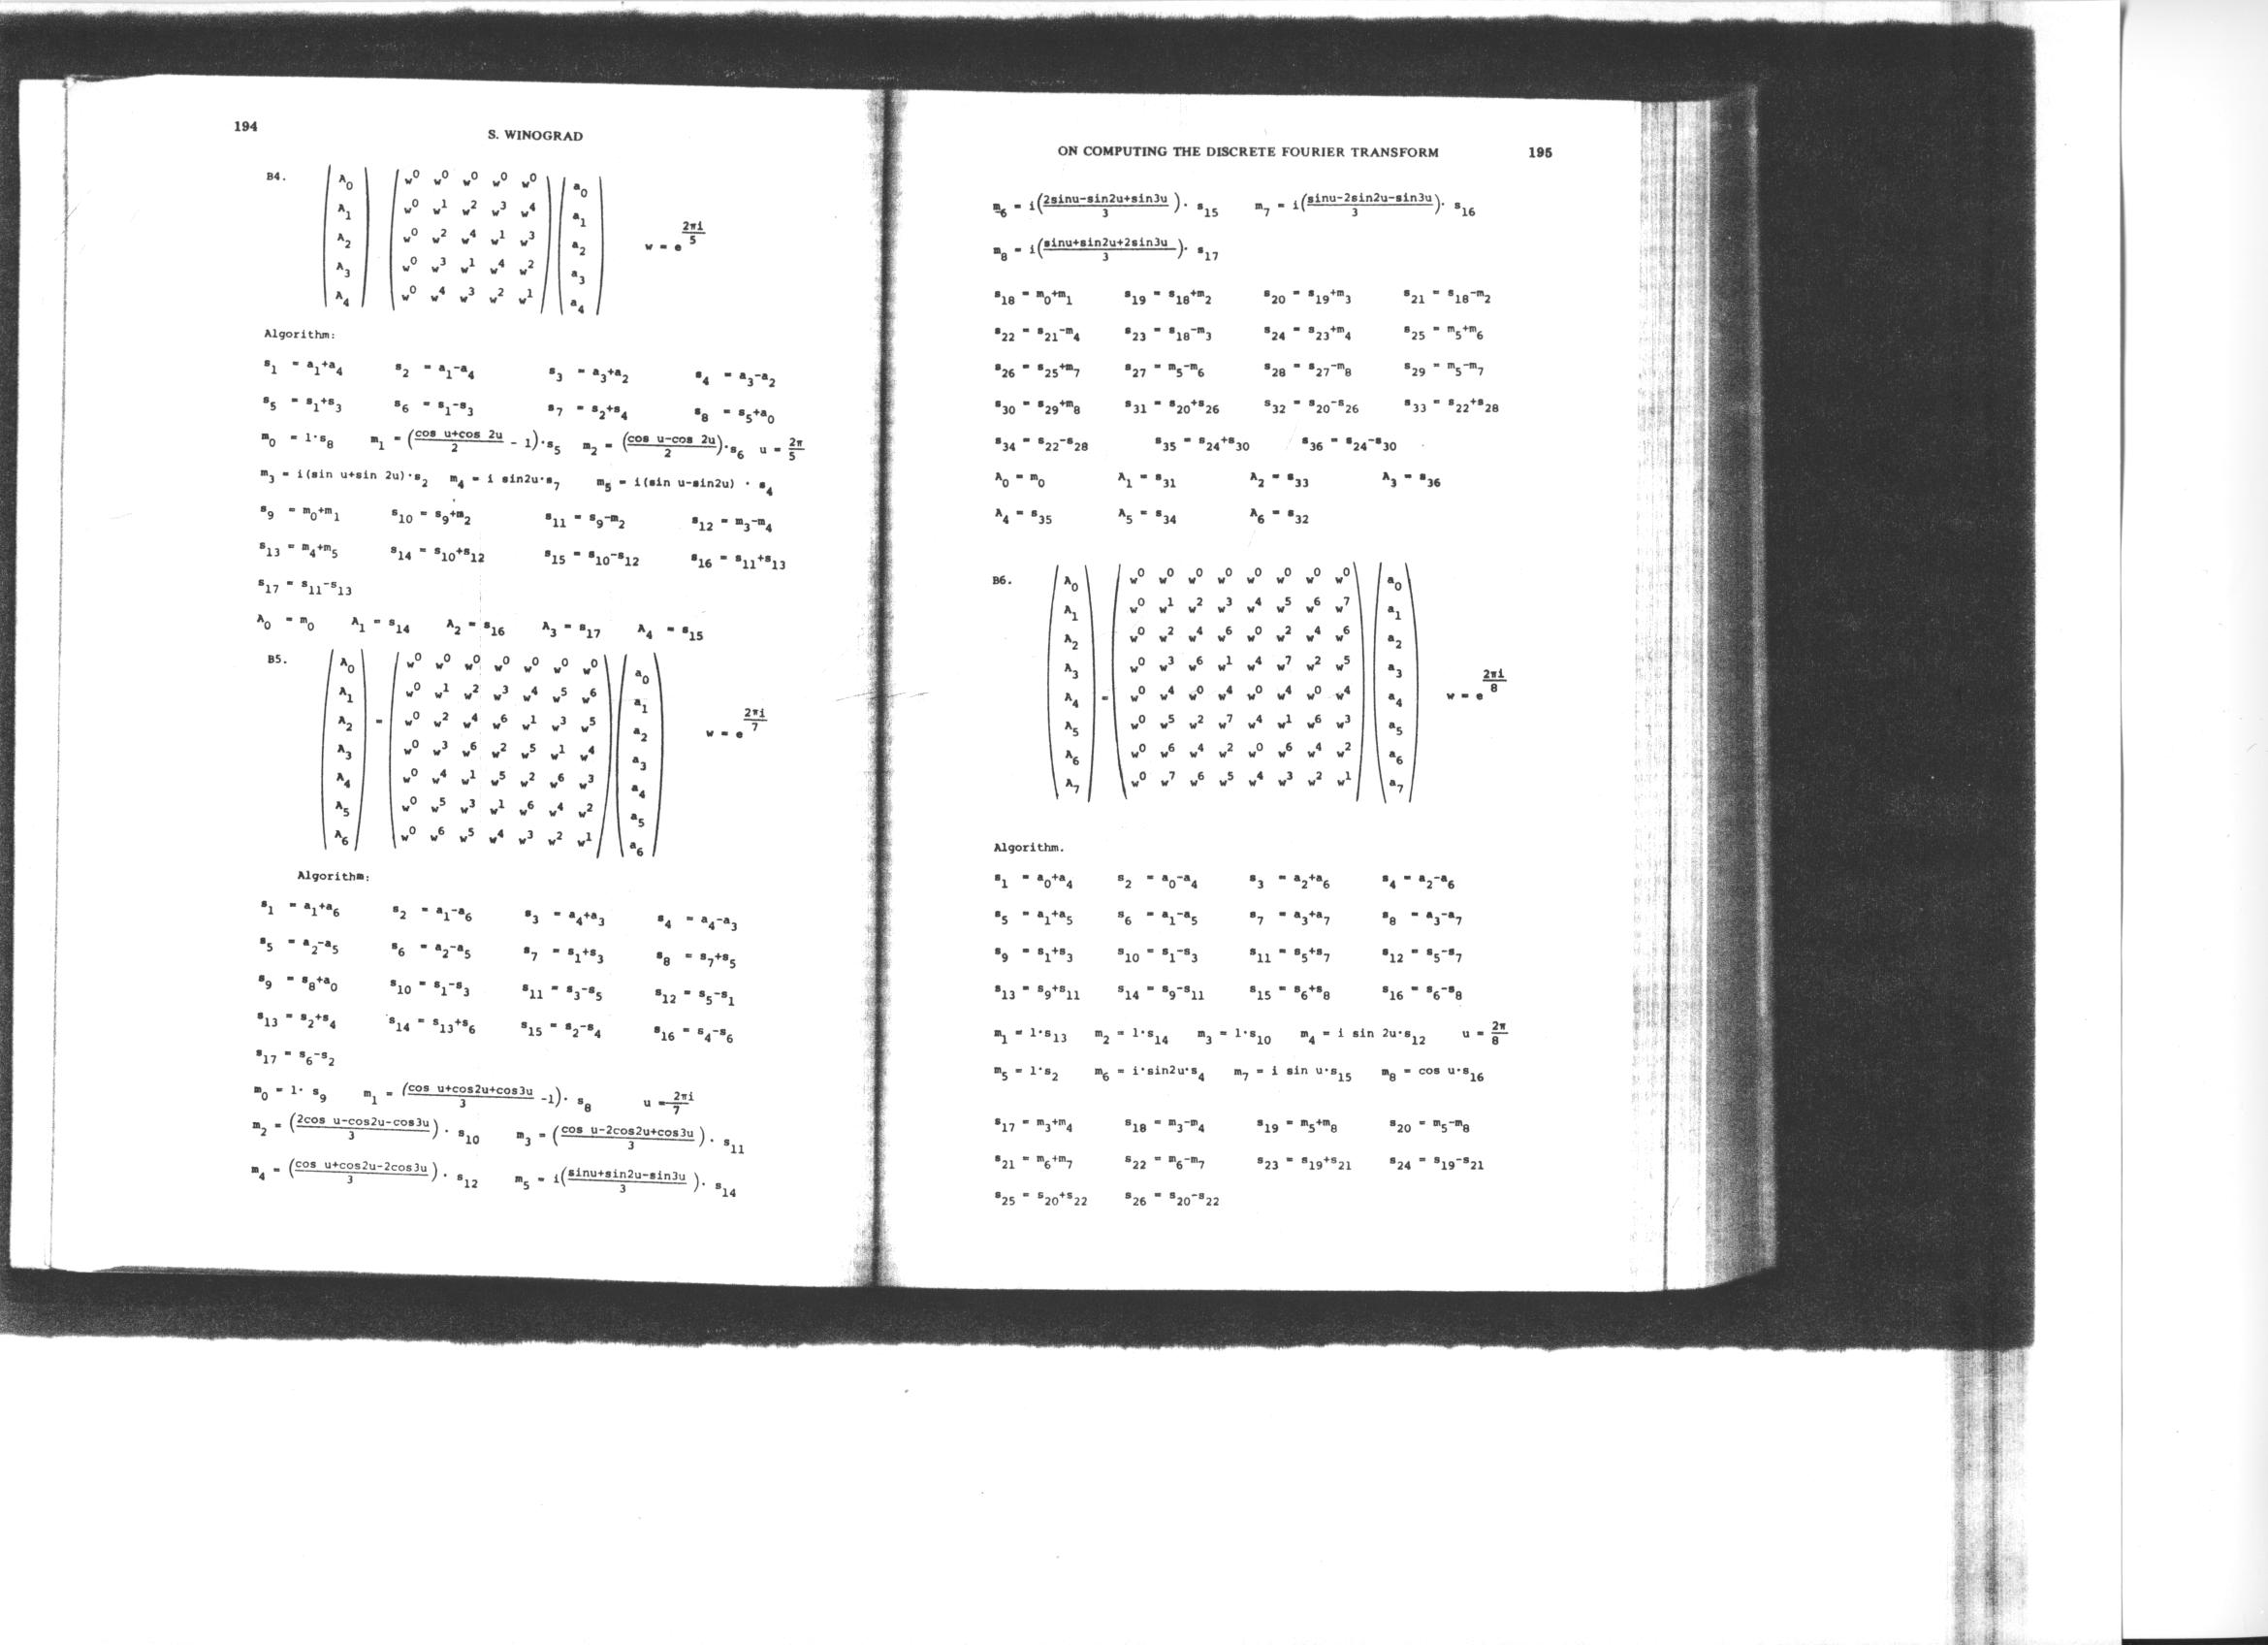 194
S. WINOGRAD
B4.
A0 w^0 w^0 w^0 w^0 w^0 a0
A1 w^0 w^1 w^2 w^3 w^4 a1
A2 w^0 w^2 w^4 w^1 w^3 a2 w = e^(2πi/5)
A3 w^0 w^3 w^1 w^4 w^2 a3
A4 w^0 w^4 w^3 w^2 w^1 a4
Algorithm:
s1 = a1+a4 s2 = a1-a4 s3 = a3+a2 s4 = a3-a2
s5 = s1+s3 s6 = s1-s3 s7 = s2+s4 s8 = s5+a0
m0 = 1·s8 m1 = ((cos u+cos 2u)/2 - 1)·s5 m2 = ((cos u-cos 2u)/2)·s6 u = 2π/5
m3 = i(sin u+sin 2u)·s2 m4 = i sin2u·s7 m5 = i(sin u-sin2u) · s4
s9 = m0+m1 s10 = s9+m2 s11 = s9-m2 s12 = m3-m4
s13 = m4+m5 s14 = s10+s12 s15 = s10-s12 s16 = s11+s13
s17 = s11-s13
A0 = m0 A1 = s14 A2 = s16 A3 = s17 A4 = s15
B5.
A0 w^0 w^0 w^0 w^0 w^0 w^0 w^0 a0
A1 w^0 w^1 w^2 w^3 w^4 w^5 w^6 a1
A2 = w^0 w^2 w^4 w^6 w^1 w^3 w^5 a2 w = e^(2πi/7)
A3 w^0 w^3 w^6 w^2 w^5 w^1 w^4 a3
A4 w^0 w^4 w^1 w^5 w^2 w^6 w^3 a4
A5 w^0 w^5 w^3 w^1 w^6 w^4 w^2 a5
A6 w^0 w^6 w^5 w^4 w^3 w^2 w^1 a6
Algorithm:
s1 = a1+a6 s2 = a1-a6 s3 = a4+a3 s4 = a4-a3
s5 = a2-a5 s6 = a2-a5 s7 = s1+s3 s8 = s7+s5
s9 = s8+a0 s10 = s1-s3 s11 = s3-s5 s12 = s5-s1
s13 = s2+s4 s14 = s13+s6 s15 = s2-s4 s16 = s4-s6
s17 = s6-s2
m0 = 1· s9 m1 = ((cos u+cos2u+cos3u)/3 -1)· s8 u = 2πi/7
m2 = ((2cos u-cos2u-cos3u)/3) · s10 m3 = ((cos u-2cos2u+cos3u)/3) · s11
m4 = ((cos u+cos2u-2cos3u)/3) · s12 m5 = i((sinu+sin2u-sin3u)/3)· s14
ON COMPUTING THE DISCRETE FOURIER TRANSFORM 195
m6 = i((2sinu-sin2u+sin3u)/3)· s15 m7 = i((sinu-2sin2u-sin3u)/3)· s16
m8 = i((sinu+sin2u+2sin3u)/3)· s17
s18 = m0+m1 s19 = s18+m2 s20 = s19+m3 s21 = s18-m2
s22 = s21-m4 s23 = s18-m3 s24 = s23+m4 s25 = m5+m6
s26 = s25+m7 s27 = m5-m6 s28 = s27-m8 s29 = m5-m7
s30 = s29+m8 s31 = s20+s26 s32 = s20-s26 s33 = s22+s28
s34 = s22-s28 s35 = s24+s30 s36 = s24-s30
A0 = m0 A1 = s31 A2 = s33 A3 = s36
A4 = s35 A5 = s34 A6 = s32
B6.
A0 w^0 w^0 w^0 w^0 w^0 w^0 w^0 w^0 a0
A1 w^0 w^1 w^2 w^3 w^4 w^5 w^6 w^7 a1
A2 w^0 w^2 w^4 w^6 w^0 w^2 w^4 w^6 a2
A3 w^0 w^3 w^6 w^1 w^4 w^7 w^2 w^5 a3
A4 = w^0 w^4 w^0 w^4 w^0 w^4 w^0 w^4 a4 w = e^(2πi/8)
A5 w^0 w^5 w^2 w^7 w^4 w^1 w^6 w^3 a5
A6 w^0 w^6 w^4 w^2 w^0 w^6 w^4 w^2 a6
A7 w^0 w^7 w^6 w^5 w^4 w^3 w^2 w^1 a7
Algorithm.
s1 = a0+a4 s2 = a0-a4 s3 = a2+a6 s4 = a2-a6
s5 = a1+a5 s6 = a1-a5 s7 = a3+a7 s8 = a3-a7
s9 = s1+s3 s10 = s1-s3 s11 = s5+s7 s12 = s5-s7
s13 = s9+s11 s14 = s9-s11 s15 = s6+s8 s16 = s6-s8
m1 = 1·s13 m2 = 1·s14 m3 = 1·s10 m4 = i sin 2u·s12 u = 2π/8
m5 = 1·s2 m6 = i·sin2u·s4 m7 = i sin u·s15 m8 = cos u·s16
s17 = m3+m4 s18 = m3-m4 s19 = m5+m8 s20 = m5-m8
s21 = m6+m7 s22 = m6-m7 s23 = s19+s21 s24 = s19-s21
s25 = s20+s22 s26 = s20-s22